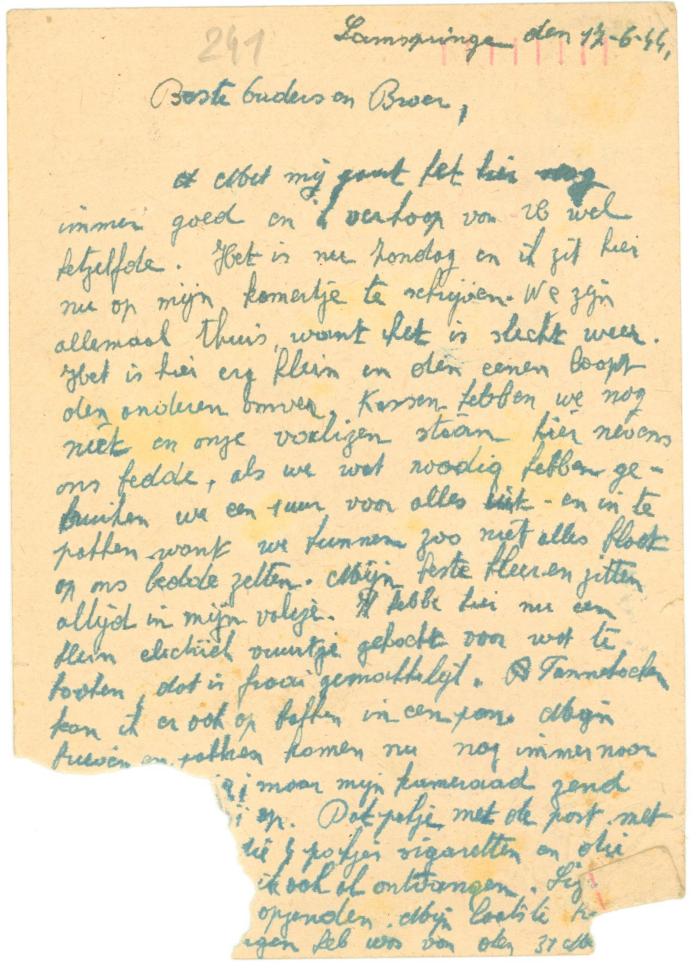 241
Lamspringe den 17-6-44,
Beste Ouders en Broer,
Met mij gaat het hier nog
immer goed en ik verhoop van U wel
hetzelfde. Het is nu zondag en ik zit hier
nu op mijn kamertje te schrijven. We zijn
allemaal thuis, want het is slecht weer.
Het is hier erg klein en den eenen loopt
den anderen omver. Kassen hebben we nog
niet en onze valiezen staan hier nevens
ons bedde, als we wat noodig hebben ge-
bruiken we een uur voor alles uit - en in te
pakken want we kunnen zoo niet alles
op ons bedde zetten. Mijn beste kleeren zitten
altijd in mijn valieze. Ik hebbe hier nu een
klein electriek vuurtje gekocht voor wat te
koken, dat is gemakkelijk. Pannekoeken
kan ik er ook op bakken in een pan. Mijn
brieven en pakken komen nu nog immer naar
maar mijn kameraad zend
op. Dat pakje met de post met
die 4 pakjes sigaretten en die
ik ook al ontvangen.
opzenden. Mijn laatste
heb was van den 31